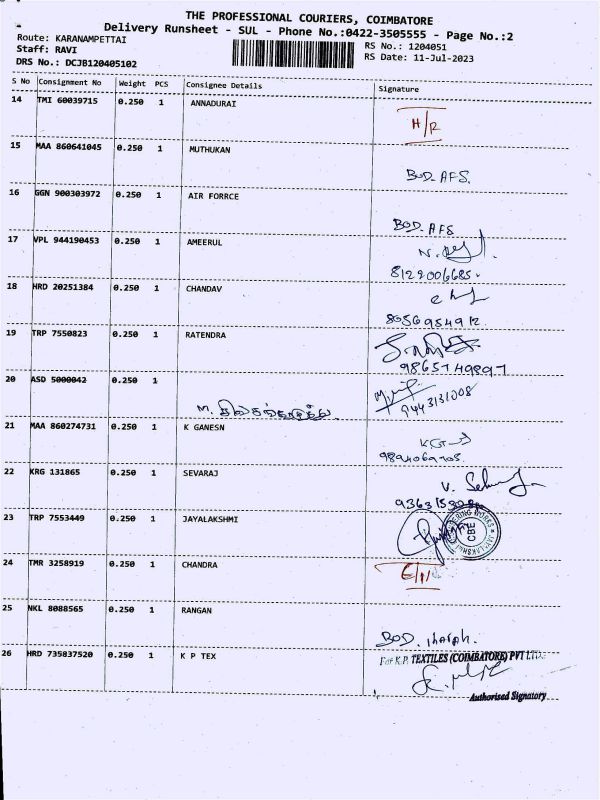 THE PROFESSIONAL COURIERS, COIMBATORE
Delivery Runsheet - SUL - Phone No.:0422-3505555 - Page No.:2
Route: KARANAMPETTAI
RS No.: 1204051
Staff: RAVI
RS Date: 11-Jul-2023
DRS No.: DCJB120405102
S No Consignment No Weight PCS Consignee Details Signature
14 TMI 60039715 0.250 1 ANNADURAI
H/R
15 MAA 860641045 0.250 1 MUTHUKAN
BOD-AFS.
16 GGN 900303972 0.250 1 AIR FORRCE
BOD-AFS
17 VPL 944190453 0.250 1 AMEERUL
8129006685.
18 HRD 20251384 0.250 1 CHANDAV
8056954912
19 TRP 7550823 0.250 1 RATENDRA
9865749897
20 ASD 5000042 0.250 1
9443131008
21 MAA 860274731 0.250 1 K GANESN
22 KRG 131865 0.250 1 SEVARAJ
23 TRP 7553449 0.250 1 JAYALAKSHMI
CBE
24 TMR 3258919 0.250 1 CHANDRA
25 NKL 8088565 0.250 1 RANGAN
BOD.
26 HRD 735837520 0.250 1 K P TEX
For K.P. TEXTILES (COIMBATORE) PVT LTD.
Authorised Signatory